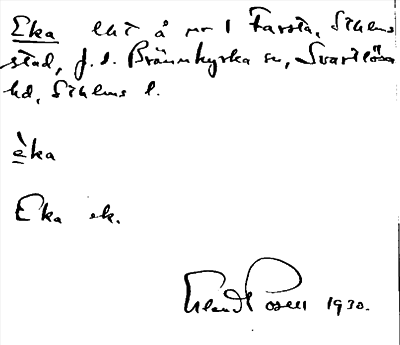 Eka lht å nr 1 Farsta, Sthlms
stad, f.d. Brännkyrka sn, Svartlösa
hd, Sthlms l.
èka
Eka ek.
1930.